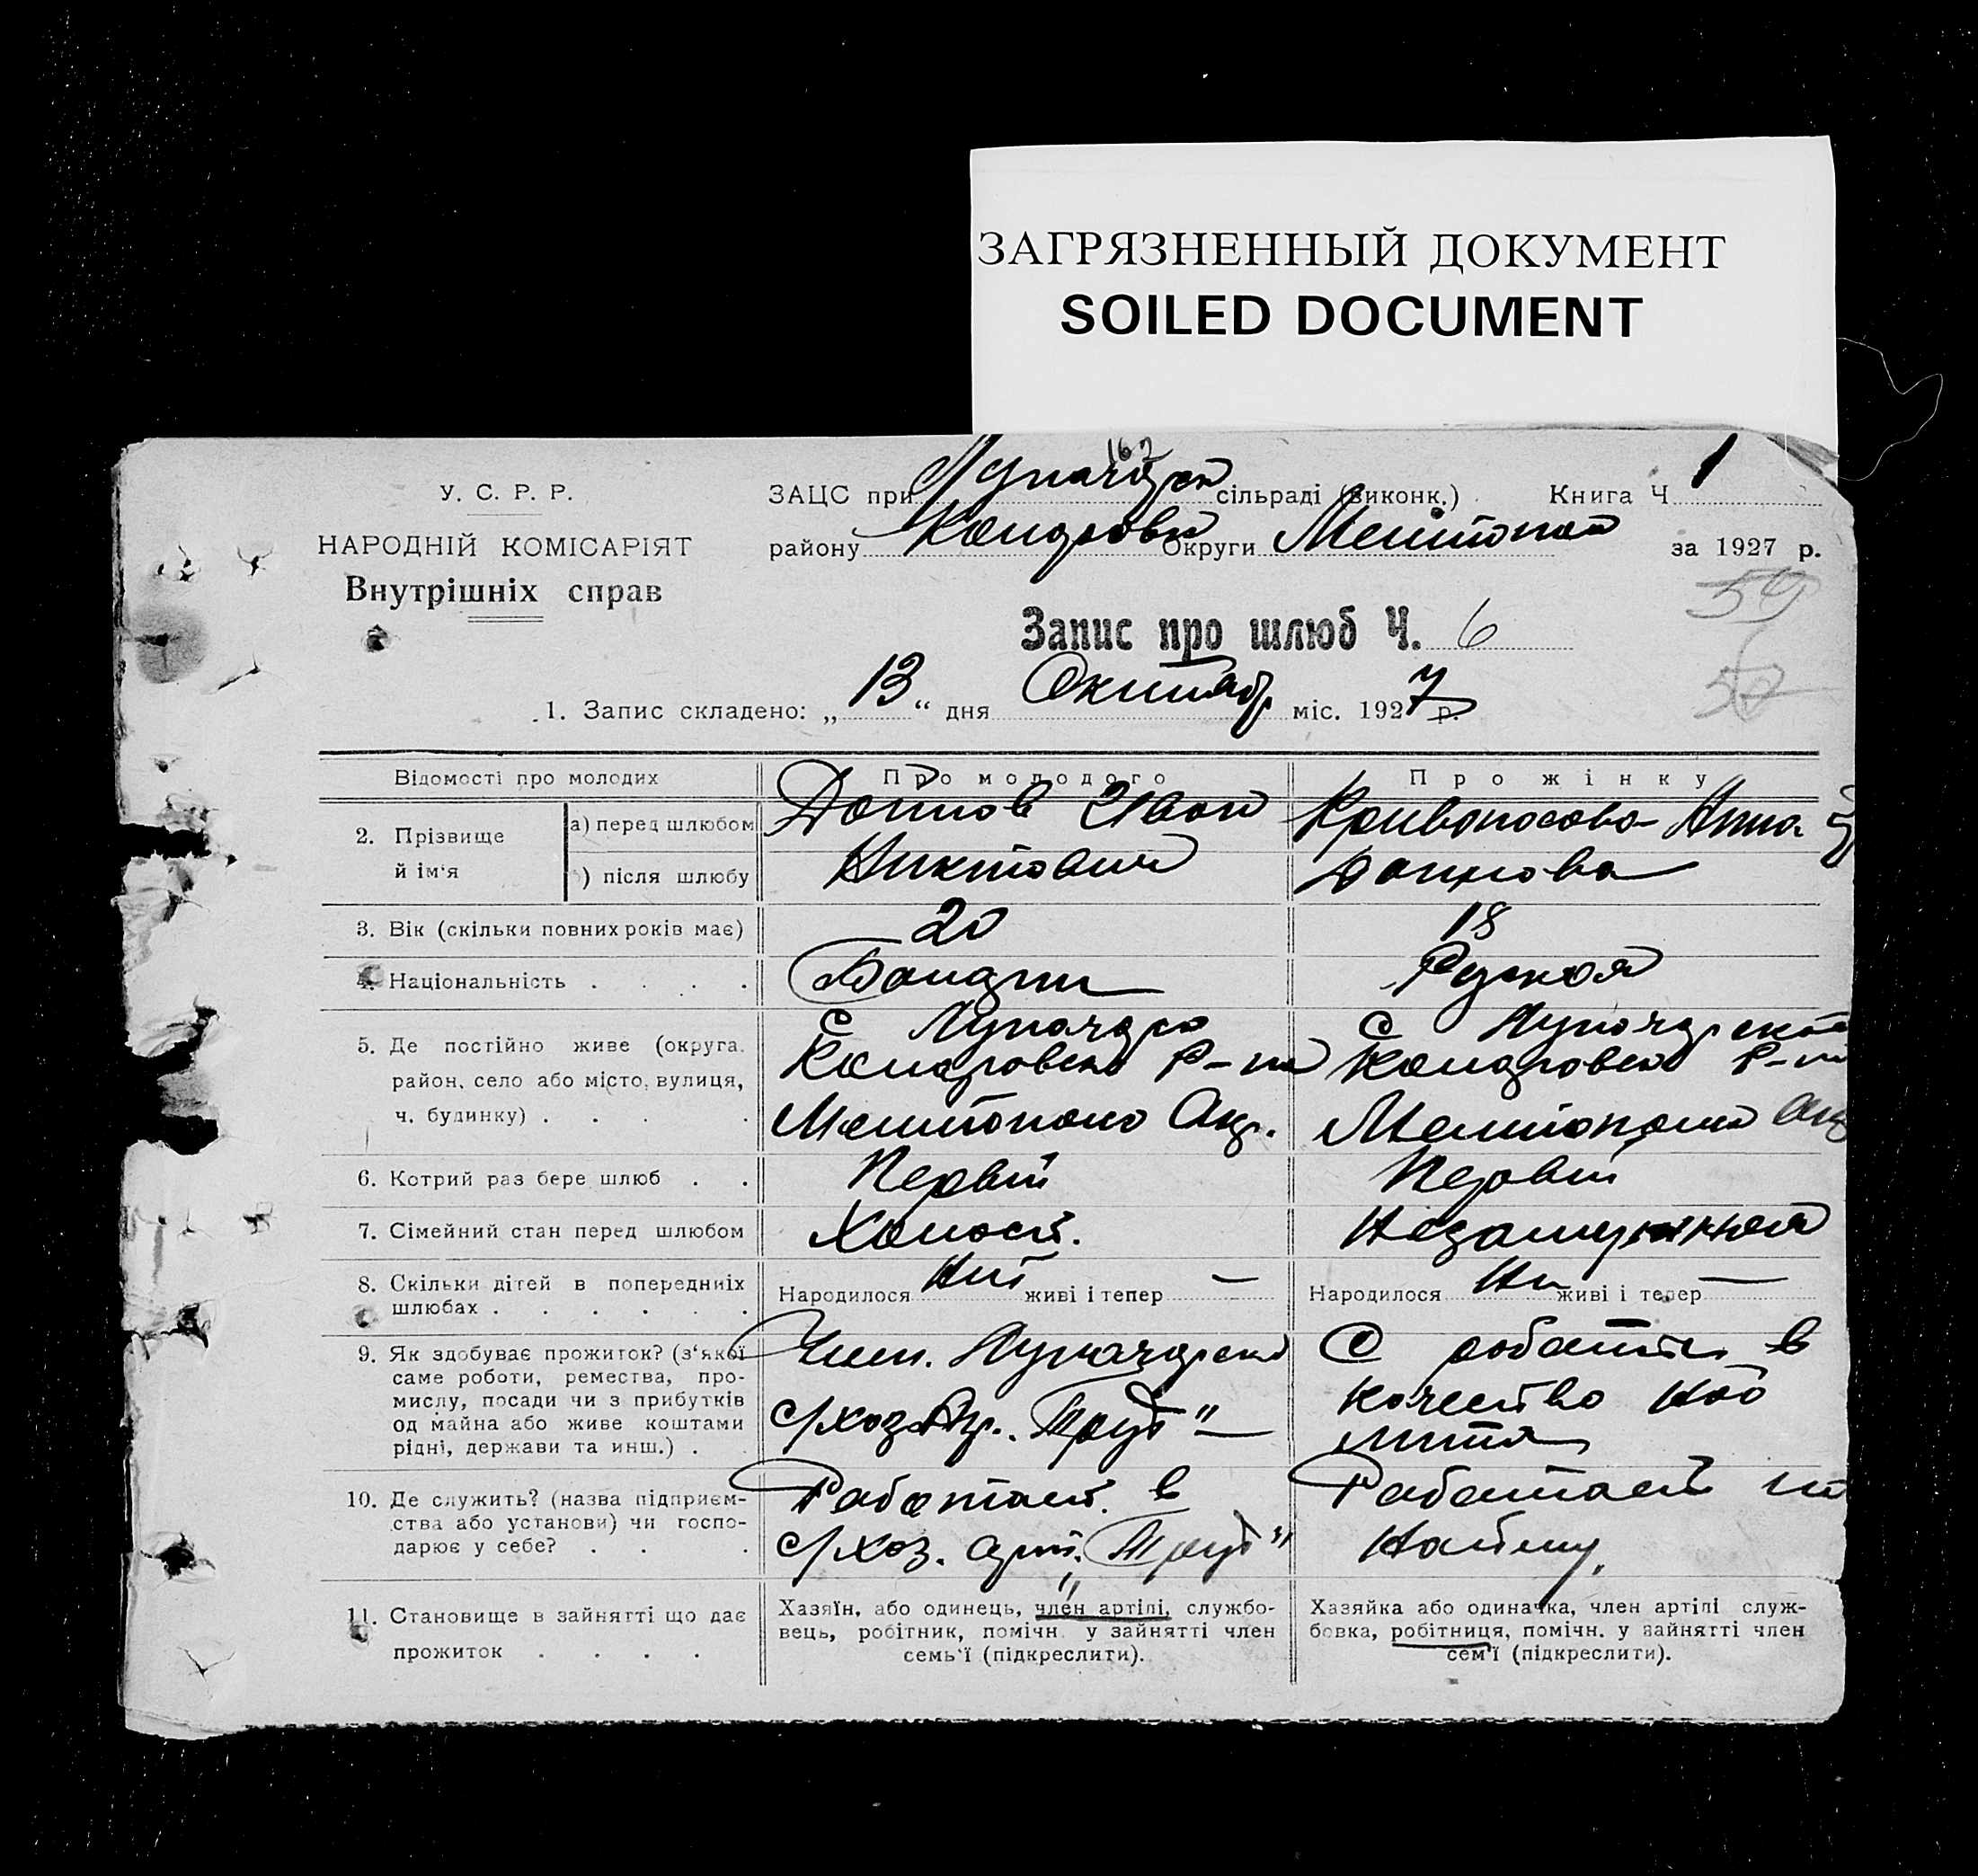 ЗАГРЯЗНЕННЫЙ ДОКУМЕНТ
SOILED DOCUMENT
У. С. Р. Р.
НАРОДНІЙ КОМІСАРІЯТ
Внутрішніх справ
162
ЗАЦС при Луначарск сільраді (виконк.) Книга Ч 1
району округи за 1927 р.
59
57
Запис про шлюб Ч. 6
1. Запис складено: „ 13 “ дня Октябр міс. 1927 р.
Відомості про молодих
Про молодого
Про жінку
2. Прізвище й ім‘я
а) перед шлюбом
) після шлюбу
Иван
Кривоносова Анна
3. Вік (скільки повних років має)
20
18
4. Національність . . . .
Руская
5. Де постійно живе (округа, район, село або місто, вулиця, ч. будинку) . . . .
С
С
Р-на
Р-на
Окр.
Окр
6. Котрий раз бере шлюб . .
Первий
Первий
7. Сімейний стан перед шлюбом
Холост.
Незамужняя
8. Скільки дітей в попередніх шлюбах . . . . . .
Народилося Нет живі і тепер —
Народилося живі і тепер —
9. Як здобуває прожиток? (з‘якої саме роботи, ремества, промислу, посади чи з прибутків од майна або живе коштами рідні, держави та инш.) .
Член. Луначарско
с/хоз. Ар. „Труд“ —
С работи в
качество
10. Де служить? (назва підприємства або установи) чи господарює у себе? . . .
Работает. в
с/хоз. арт. „Труд“
Работает по
Найму.
11. Становище в зайнятті що дає прожиток . . . .
Хазяїн, або одинець, член артілі, службовець, робітник, помічн. у зайнятті член семь‘ї (підкреслити).
Хазяйка або одиначка, член артілі службовка, робітниця, помічн. у зайнятті член сем‘ї (підкреслити).